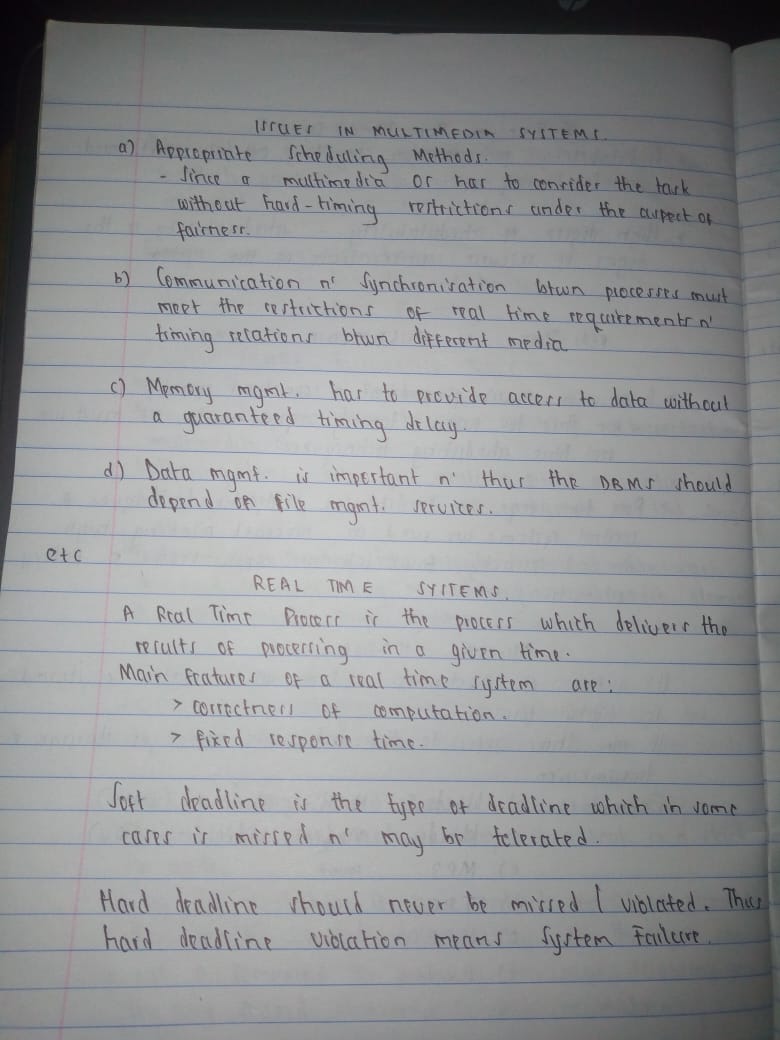 ISSUES IN MULTIMEDIA SYSTEMS.
a) Appropriate Scheduling Methods.
- Since a multimedia OS has to consider the task
without hard-timing restrictions under the aspect of
fairness.
b) Communication n' Synchronisation btwn processes must
meet the restrictions of real time requirements n'
timing relations btwn different media
c) Memory mgmt. has to provide access to data without
a guaranteed timing delay.
d) Data mgmt. is important n' thus the DBMS should
depend on file mgmt. services.
etc
REAL TIME SYSTEMS.
A Real Time Process is the process which delivers the
results of processing in a given time.
Main features of a real time system are:
> correctness of computation.
> fixed response time.
Soft deadline is the type of deadline which in some
cases is missed n' may be tolerated.
Hard deadline should never be missed / violated. Thus
hard deadline violation means system failure.